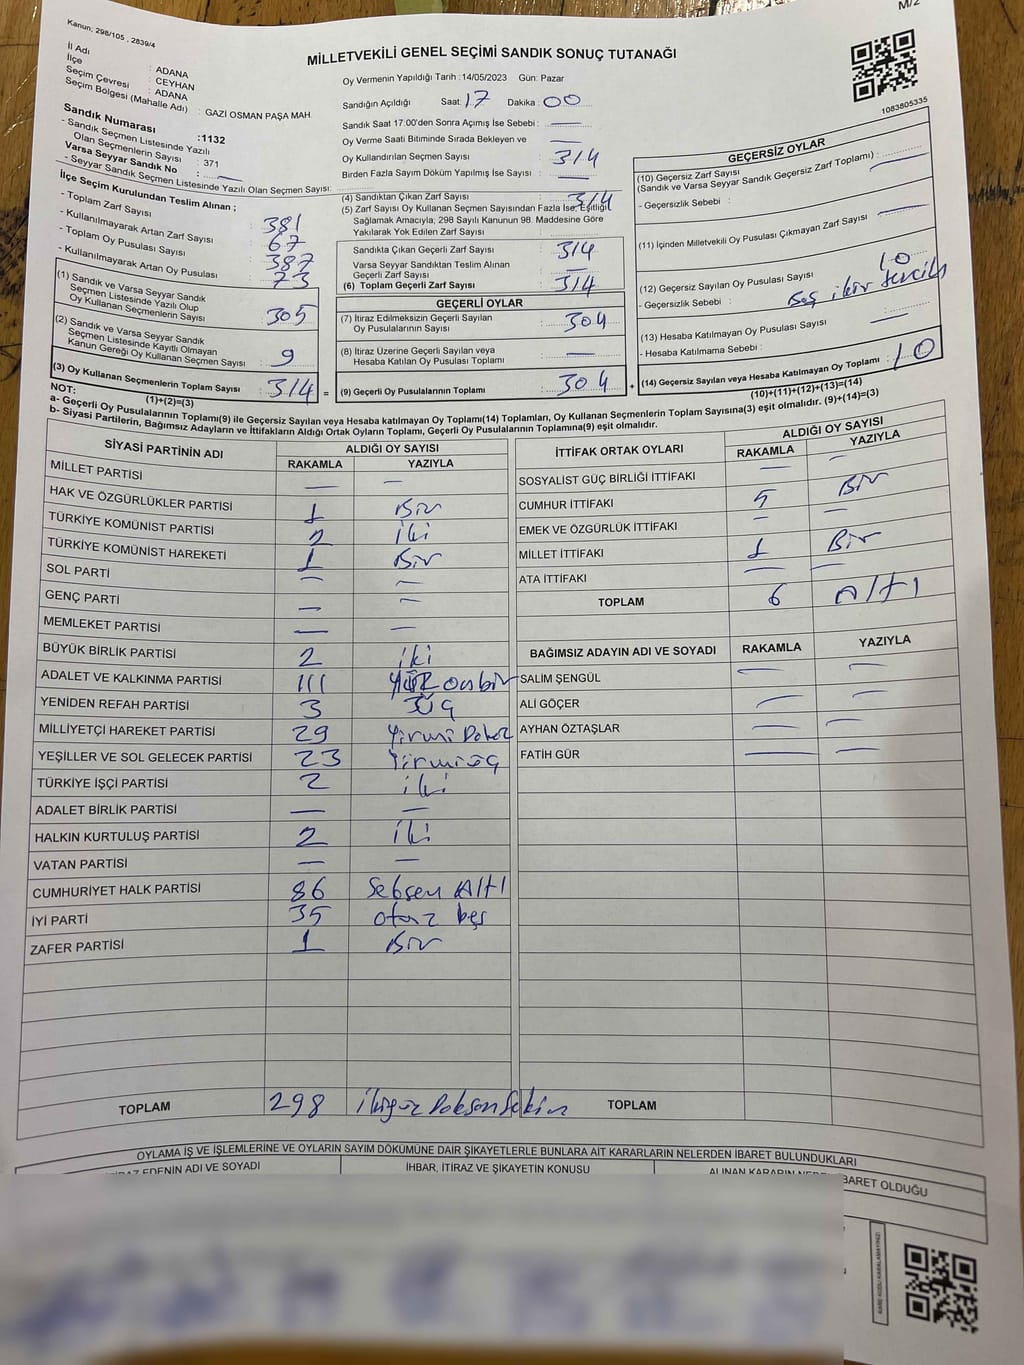 M/2
Kanun, 298/105 , 2839/4
MİLLETVEKİLİ GENEL SEÇİMİ SANDIK SONUÇ TUTANAĞI
İl Adı : ADANA
İlçe : CEYHAN
Seçim Çevresi : ADANA
Seçim Bölgesi (Mahalle Adı) : GAZİ OSMAN PAŞA MAH.
Sandık Numarası :1132
- Sandık Seçmen Listesinde Yazılı
Olan Seçmenlerin Sayısı : 371
Varsa Seyyar Sandık No : —
- Seyyar Sandık Seçmen Listesinde Yazılı Olan Seçmen Sayısı:
İlçe Seçim Kurulundan Teslim Alınan ;
- Toplam Zarf Sayısı : 381
- Kullanılmayarak Artan Zarf Sayısı : 67
- Toplam Oy Pusulası Sayısı : 387
- Kullanılmayarak Artan Oy Pusulası : 73
(1) Sandık ve Varsa Seyyar Sandık
Seçmen Listesinde Yazılı Olup
Oy Kullanan Seçmenlerin Sayısı : 305
(2) Sandık ve Varsa Seyyar Sandık
Seçmen Listesinde Kayıtlı Olmayan
Kanun Gereği Oy Kullanan Seçmen Sayısı : 9
(3) Oy Kullanan Seçmenlerin Toplam Sayısı : 314 =
(1)+(2)=(3)
Oy Vermenin Yapıldığı Tarih :14/05/2023 Gün: Pazar
Sandığın Açıldığı Saat: 17 Dakika : 00
Sandık Saat 17:00'den Sonra Açımış İse Sebebi : —
Oy Verme Saati Bitiminde Sırada Bekleyen ve
Oy Kullandırılan Seçmen Sayısı : 314
Birden Fazla Sayım Döküm Yapılmış İse Sayısı : —
(4) Sandıktan Çıkan Zarf Sayısı : 314
(5) Zarf Sayısı Oy Kullanan Seçmen Sayısından Fazla İse, Eşitliği
Sağlamak Amacıyla, 298 Sayılı Kanunun 98. Maddesine Göre
Yakılarak Yok Edilen Zarf Sayısı :
Sandıkta Çıkan Geçerli Zarf Sayısı : 314
Varsa Seyyar Sandıktan Teslim Alınan
Geçerli Zarf Sayısı : —
(6) Toplam Geçerli Zarf Sayısı : 314
GEÇERLİ OYLAR
(7) İtiraz Edilmeksizin Geçerli Sayılan
Oy Pusulalarının Sayısı : 304
(8) İtiraz Üzerine Geçerli Sayılan veya
Hesaba Katılan Oy Pusulası Toplamı : —
(9) Geçerli Oy Pusulalarının Toplamı : 304 +
1083805335
GEÇERSİZ OYLAR
(10) Geçersiz Zarf Sayısı
(Sandık ve Varsa Seyyar Sandık Geçersiz Zarf Toplamı) : —
- Geçersizlik Sebebi :
(11) İçinden Milletvekili Oy Pusulası Çıkmayan Zarf Sayısı : —
(12) Geçersiz Sayılan Oy Pusulası Sayısı : 10
- Geçersizlik Sebebi :
(13) Hesaba Katılmayan Oy Pusulası Sayısı : —
- Hesaba Katılmama Sebebi :
(14) Geçersiz Sayılan veya Hesaba Katılmayan Oy Toplamı : 10
(10)+(11)+(12)+(13)=(14)
NOT:
a- Geçerli Oy Pusulalarının Toplamı(9) ile Geçersiz Sayılan veya Hesaba katılmayan Oy Toplamı(14) Toplamları, Oy Kullanan Seçmenlerin Toplam Sayısına(3) eşit olmalıdır. (9)+(14)=(3)
b- Siyasi Partilerin, Bağımsız Adayların ve İttifakların Aldığı Ortak Oyların Toplamı, Geçerli Oy Pusulalarının Toplamına(9) eşit olmalıdır.
SİYASİ PARTİNİN ADI ALDIĞI OY SAYISI
RAKAMLA YAZIYLA
MİLLET PARTİSİ — —
HAK VE ÖZGÜRLÜKLER PARTİSİ 1 Bir
TÜRKİYE KOMÜNİST PARTİSİ 2 iki
TÜRKİYE KOMÜNİST HAREKETİ 1 Bir
SOL PARTİ — —
GENÇ PARTİ — —
MEMLEKET PARTİSİ — —
BÜYÜK BİRLİK PARTİSİ 2 iki
ADALET VE KALKINMA PARTİSİ 111 YÜZ onbir
YENİDEN REFAH PARTİSİ 3 Üç
MİLLİYETÇİ HAREKET PARTİSİ 29 Yirmi Dokuz
YEŞİLLER VE SOL GELECEK PARTİSİ 23 Yirmi üç
TÜRKİYE İŞÇİ PARTİSİ 2 iki
ADALET BİRLİK PARTİSİ — —
HALKIN KURTULUŞ PARTİSİ 2 iki
VATAN PARTİSİ — —
CUMHURİYET HALK PARTİSİ 86 Seksen Altı
İYİ PARTİ 35 otuz beş
ZAFER PARTİSİ 1 Bir
TOPLAM 298 ikiyüz Doksan Sekiz
İTTİFAK ORTAK OYLARI ALDIĞI OY SAYISI
RAKAMLA YAZIYLA
SOSYALİST GÜÇ BİRLİĞİ İTTİFAKI — —
CUMHUR İTTİFAKI 5 Bir
EMEK VE ÖZGÜRLÜK İTTİFAKI — —
MİLLET İTTİFAKI 1 Bir
ATA İTTİFAKI — —
TOPLAM 6 Altı
BAĞIMSIZ ADAYIN ADI VE SOYADI RAKAMLA YAZIYLA
SALİM ŞENGÜL — —
ALİ GÖÇER — —
AYHAN ÖZTAŞLAR — —
FATİH GÜR — —
TOPLAM
OYLAMA İŞ VE İŞLEMLERİNE VE OYLARIN SAYIM DÖKÜMÜNE DAİR ŞİKAYETLERLE BUNLARA AİT KARARLARIN NELERDEN İBARET BULUNDUKLARI
EDENİN ADI VE SOYADI İHBAR, İTİRAZ VE ŞİKAYETİN KONUSU ALINAN KARARIN İBARET OLDUĞU